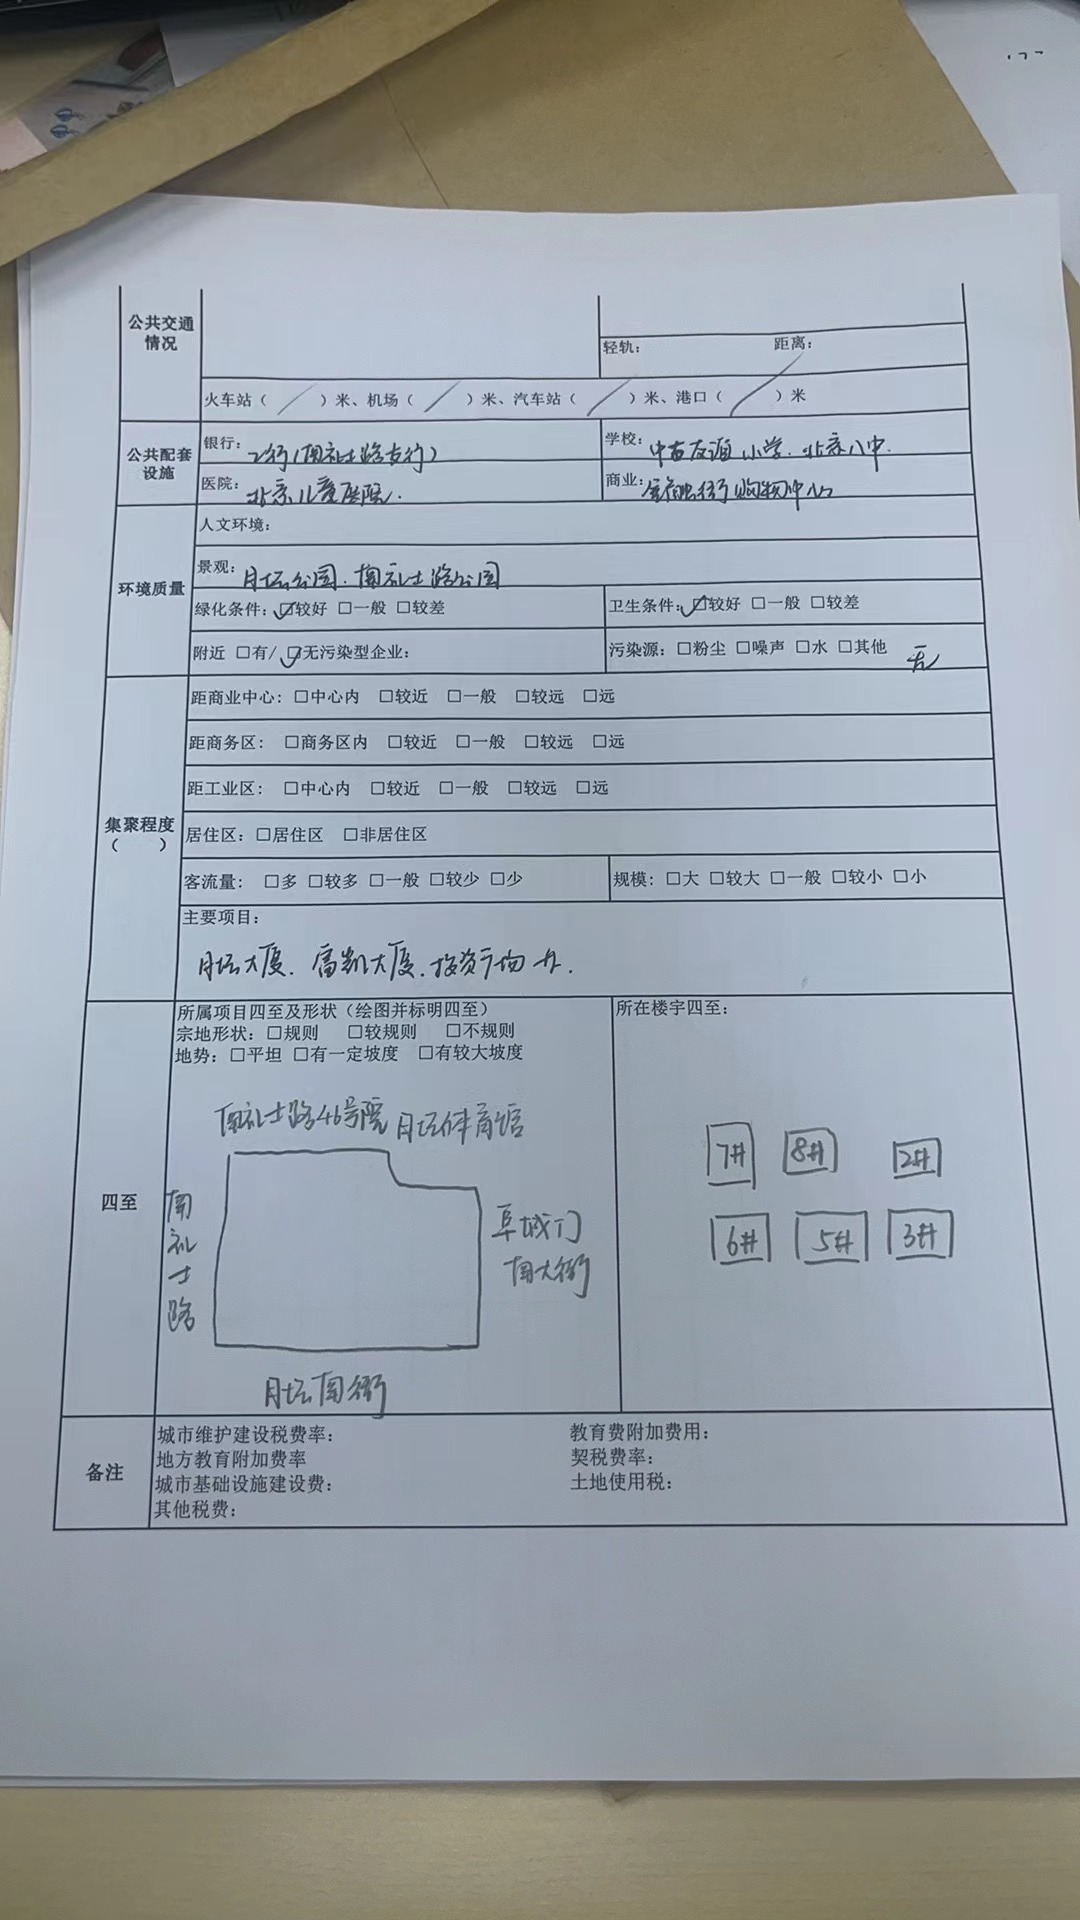 公共交通
情况
轻轨： 距离：
火车站（ / ）米、机场（ / ）米、汽车站（ / ）米、港口（ / ）米
公共配套
设施
银行：工行(南礼士路支行) 学校：中古友谊小学、北京八中
医院：北京儿童医院. 商业：金融街购物中心
环境质量
人文环境：
景观：月坛公园、南礼士路公园
绿化条件：☑较好 □一般 □较差 卫生条件：☑较好 □一般 □较差
附近 □有/ ☑无污染型企业： 污染源：□粉尘 □噪声 □水 □其他 无
集聚程度
（ ）
距商业中心：□中心内 □较近 □一般 □较远 □远
距商务区： □商务区内 □较近 □一般 □较远 □远
距工业区： □中心内 □较近 □一般 □较远 □远
居住区：□居住区 □非居住区
客流量： □多 □较多 □一般 □较少 □少 规模：□大 □较大 □一般 □较小 □小
主要项目：
月坛大厦、富凯大厦、投资广场
四至
所属项目四至及形状（绘图并标明四至） 所在楼宇四至：
宗地形状：□规则 □较规则 □不规则
地势：□平坦 □有一定坡度 □有较大坡度
南礼士路46号院 月坛体育馆
南礼士路
阜城门
南大街
月坛南街
7# 8# 2#
6# 5# 3#
备注
城市维护建设税费率： 教育费附加费用：
地方教育附加费率 契税费率：
城市基础设施建设费： 土地使用税：
其他税费：